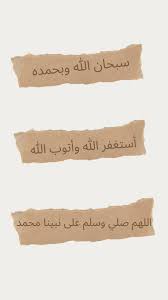 سبحان الله وبحمده
أستغفر الله وأتوب الله
اللهم صلي وسلم على نبينا محمد